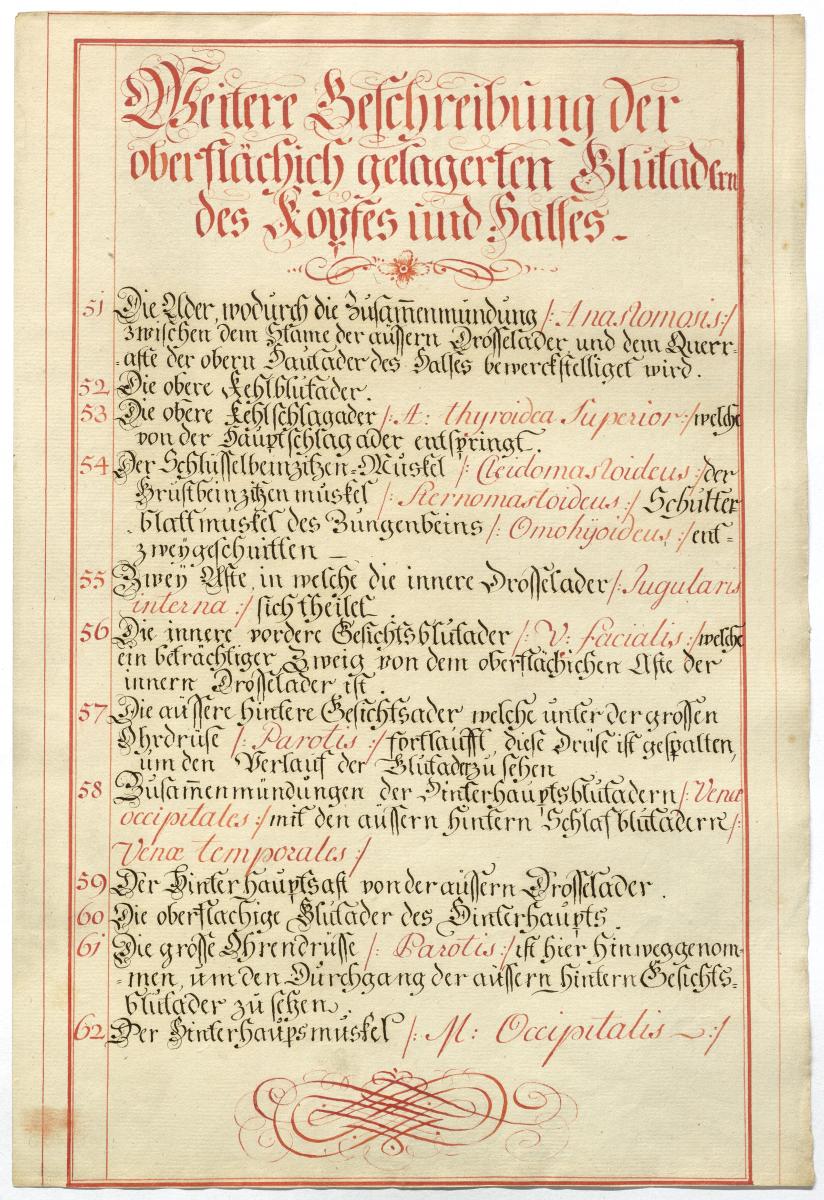 Weitere Beschreibung der
oberflächich gelagerten Blutadern
des Kopfes und Halses.
51 Die Ader, wodurch die Zusam̄enmündung /: Anastomosis :/
zwischen dem Stam̄e der äussern Drosselader, und dem Querr-
-aste der obern Hautader des Halses bewerckstelliget wird.
52 Die obere Kehlblutader.
53 Die obere Kehlschlagader /: A: thyroidea Superior :/ welche
von der Hauptschlagader entspringt.
54 Der Schlüsselbeinzitzen-Muskel /: Cleidomastoideus :/ der
Brustbeinzitzenmuskel /: Sternomastoideus :/ Schulter-
blattmuskel des Zungenbeins /: Omohÿoideus :/ ent=
zweÿgeschnitten —
55 Zweÿ Aste, in welche die innere Drosselader /: Jugularis
interna :/ sich theilet.
56 Die innere vordere Gesichtsblutader /: V: facialis :/ welche
ein beträchtiger Zweig von dem oberflächichen Aste der
innern Drosselader ist.
57 Die äussere hintere Gesichtsader welche unter der grossen
Ohrdrüse /: Parotis :/ fortlaufft, diese Drüse ist gespalten,
um den Verlauf der Blutader zu sehen
58 Zusam̄enmündungen der Hinterhauptsblutadern /: Venæ
occipitales :/ mit den äussern hintern Schlafblutadern /:
Venæ temporales :/
59 Der Hinterhauptsast von der äussern Drosselader.
60 Die oberflachige Blutader des Hinterhaupts.
61 Die grosse Ohrendrüsse /: Parotis :/ ist hier hinweggenom-
-men, um den Durchgang der äussern hintern Gesichts=
blutader zu sehen.
62 Der Hinterhaupsmuskel /: M: Occipitalis — :/